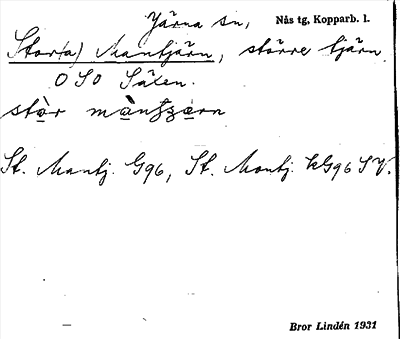 Järna sn, Nås tg, Kopparb. l.
Stor(a) Mantjärn, större tjärn
OSO Sälen.
St. Mantj. G96, St. Mantj. kG96 SV.
Bror Lindén 1931